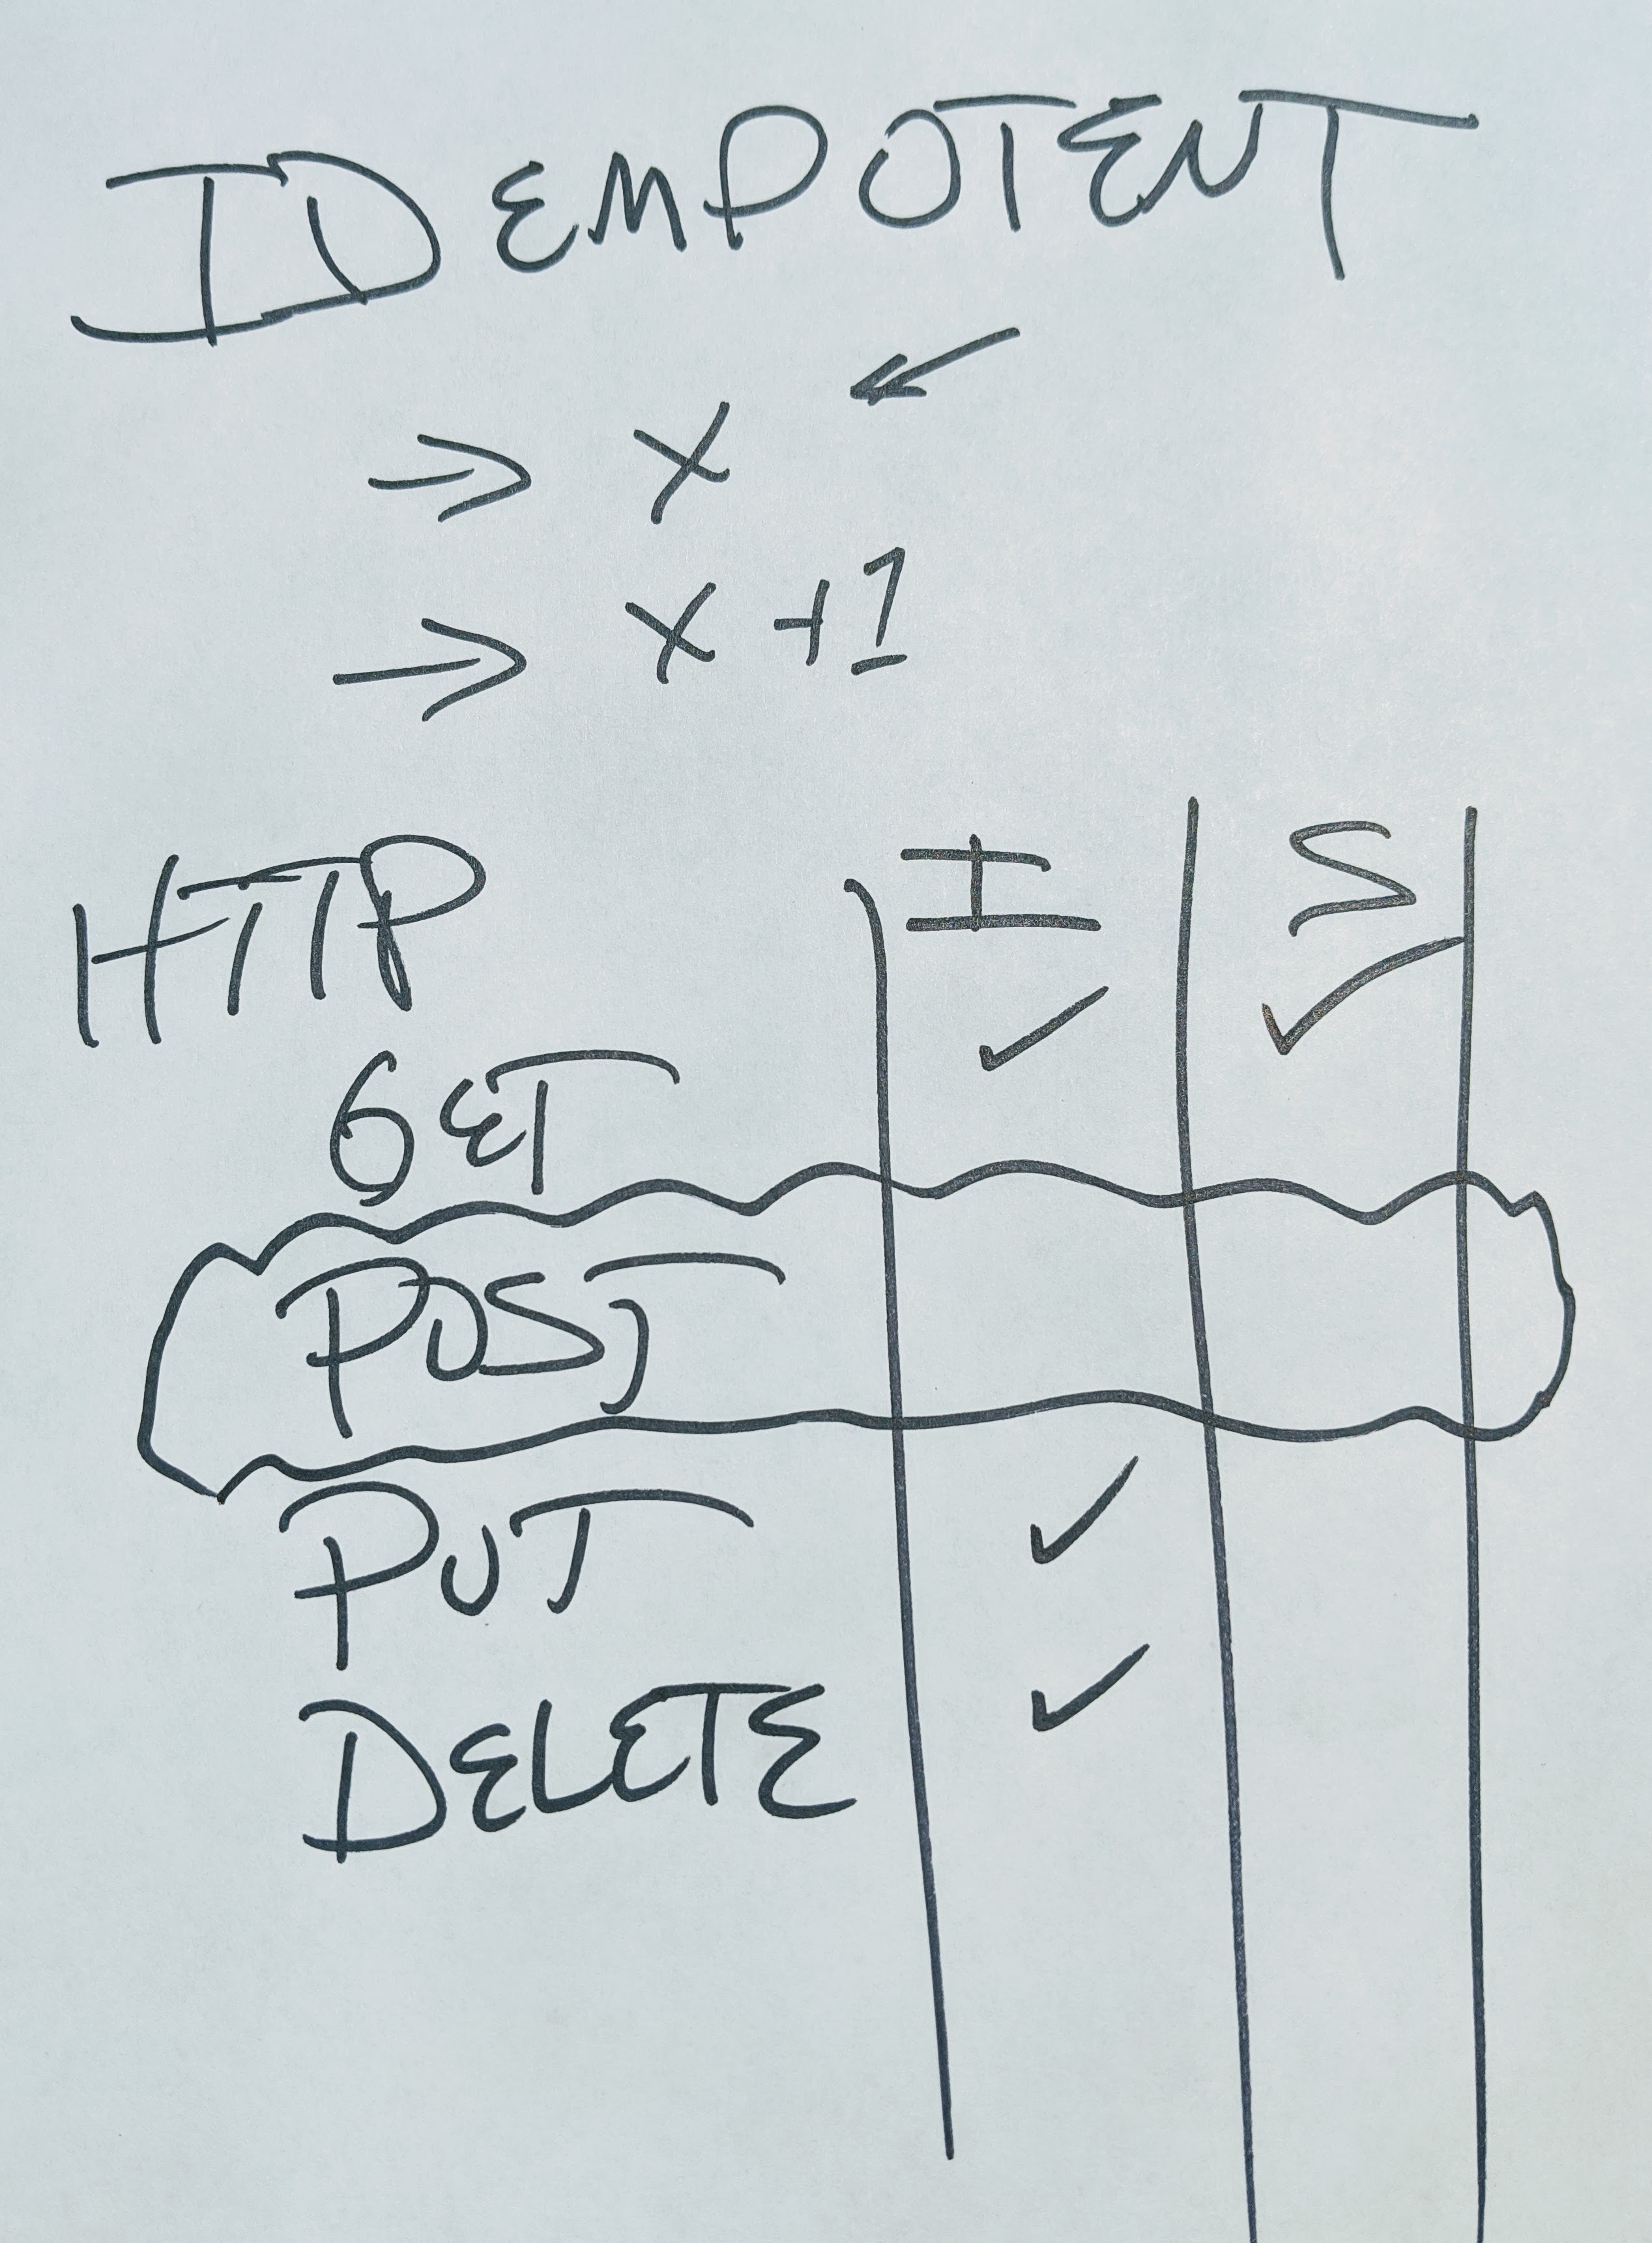 IDEMPOTENT
→ X ←
→ X +1
HTTP I S
GET ✓ ✓
POST
PUT ✓
DELETE ✓